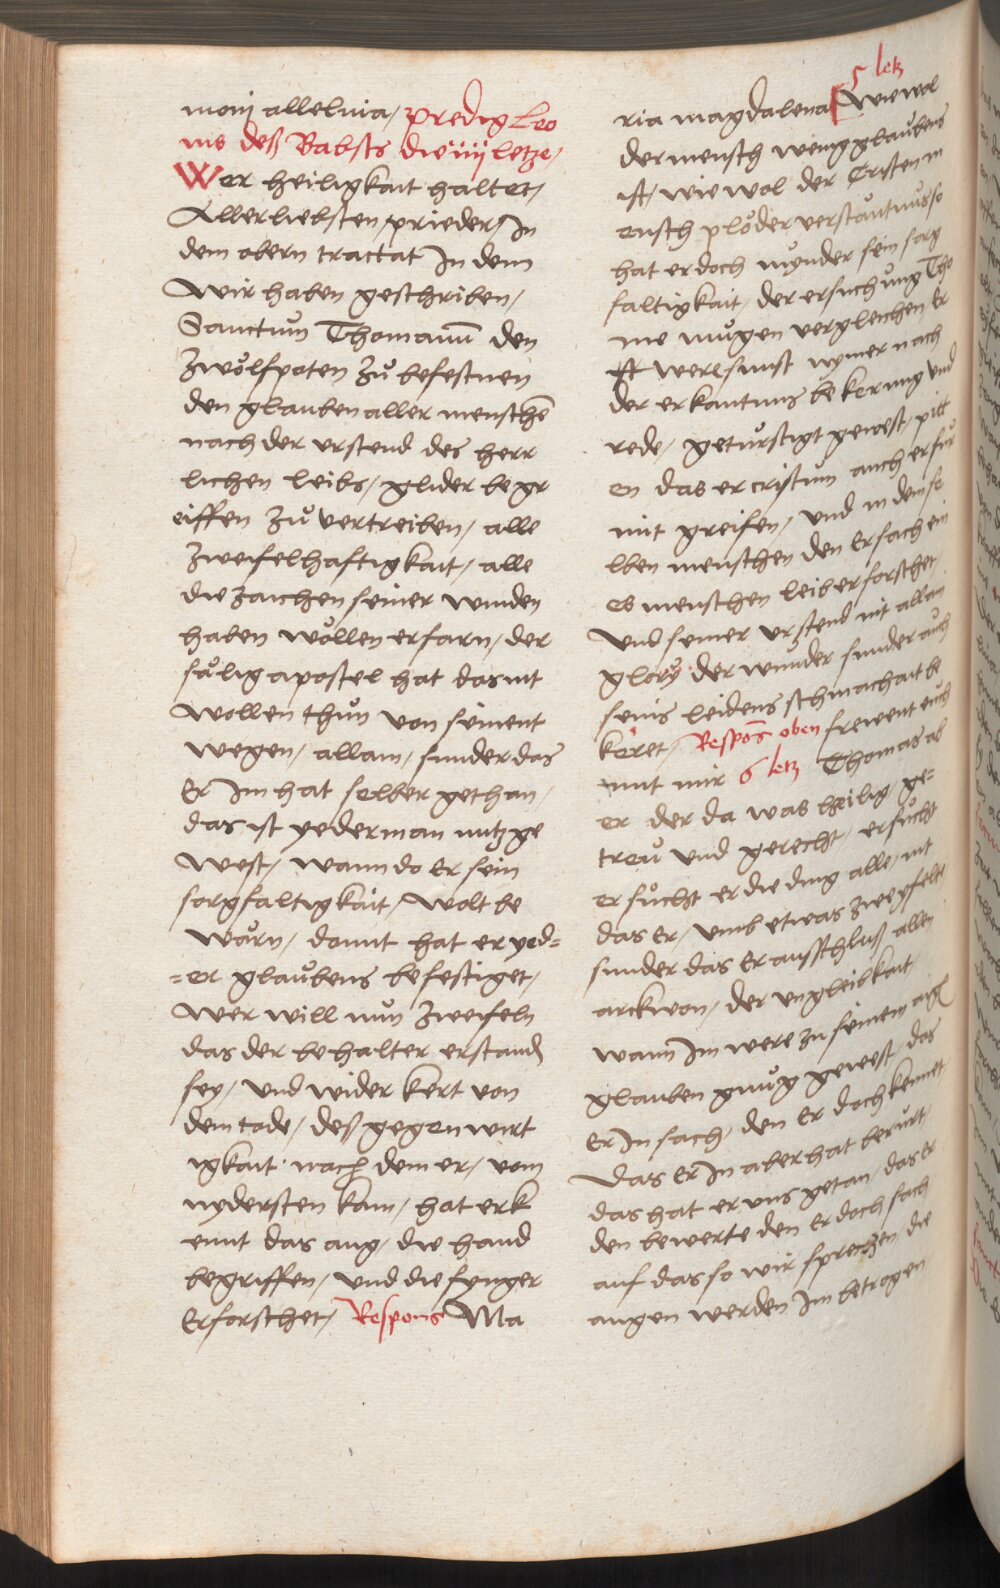 moij alleluia, predig Leo
nis deß Babsts die iiij letze,
Wer heiligkait haltet,
Allerliebsten, prieder, In
dem obern tractat In dem
Wir haben geschriben,
Sanctum Thomam den
zwölfpoten zů befestnen
den glauben aller menschē
nach der vrstend des herr
lichen leibs, glider begr
eiffen zů vertreiben, alle
zweifelhaftigkait, alle
die zaichen seiner wunden
haben wöllen erfarn, der
sälig apostel hat das nit
wollen thůn von seinent
wegen, allain, sunder das
Er Im hat selber gethan,
das ist yederman nutz ge
west, wann do Er sein
sorgfaltigkait, wolt be
warn, damit hat er yed=
=er glaubens befestiget,
wer will nun zweifeln
das der behalter erstand
sey, vnd wider kert von
dem tode, deß gegenwirt
igkait nach dem er, vom
nydersten kam, hat erk
ennt das aug, die hand
begriffen, vnd die fynger
Erforschet, Respons Ma
5 letz
ria magdalena Wiewol
der mensch wenig glaubens
ist, wie wol der Ersten m
ensch plöder verstantnus so
hat er doch mynder sein sorg
faltigkait, der ersuchung Tho
me mugen vergleichen, Er
were sunst nymer nach
der erkantnus bekerung vnd
rede, geturstigt gewest, pitt
en das er cristum auch erfur
mit greifen, vnd in dem se
lben menschen den Er sach ein
es menschen leib erforschet,
vnd seiner vrstend nit allain
glory der wunder sunder auch
seins leidens schmachait be
keret, Respōs oben frewent euch
mit mir 6 letz Thomas ab
er der da was heilig, ge=
treu vnd gerecht, ersucht
er sucht er die ding alle, nit
das Er, vmb etwas zweyfelt
sunder das Er ausschluß allen
arckwon, der vngleibkait,
wann Im were zu seinem aigen
glauben gnug gewest, das
Er In sach, den Er doch kennet
Das Er In aber hat berurt,
das hat er vns getan, das Er
den bewerte den Er doch sach
auf das so wir sprechen, die
augen werden Im betrogen